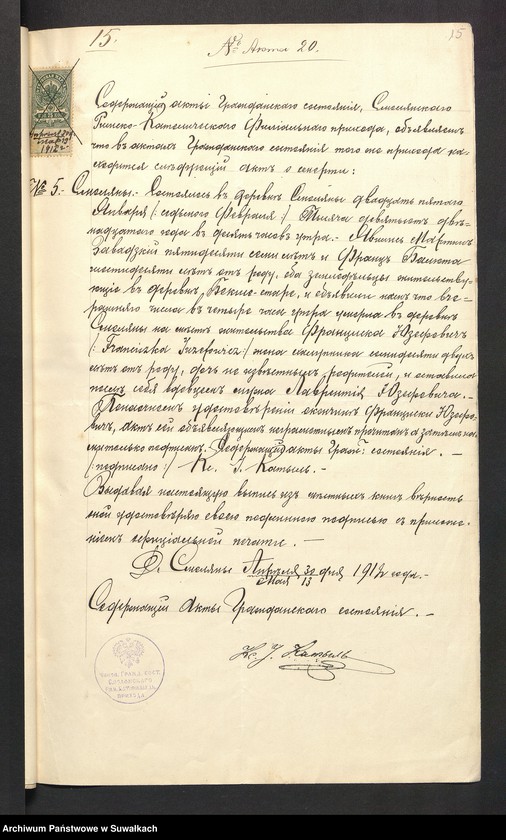 15.
№ Акта 20.
15
Содержащій акты Гражданскаго состоянія, Смолянскаго
Римско-Католическаго Филіальнаго прихода, объявляетъ
что въ актахъ Гражданскаго состоянія того же прихода на-
ходится слѣдующій актъ о смерти:
№ 5. Смоляны. Состоялось въ деревнѣ Смоляны двадцать пятаго
Января /: седьмого Февраля :/ Тысяча девятьсотъ двѣ-
надцатаго года въ десять часовъ утра. - Явились Мартинъ
Завадзкій пятидесяти семи лѣтъ и Францъ
шестидесяти лѣтъ отъ роду, оба земледѣльцы жительствую-
ющіе въ деревнѣ, и объявили намъ что вче-
рашняго числа въ четыре часа утра умерла въ деревнѣ
Смоляны на мѣстѣ жительства Францишка Юзефовичъ
/: Franciszka Juzefowicz :/ жена семидесяти двухъ
лѣтъ отъ роду, дочь не извѣстныхъ родителей, и оставила
послѣ себя вдовцемъ мужа Лаврентія Юзефовича. -
удостовѣреніи кончины Францишки Юзефо-
вичъ, актъ сей объявляющимъ неграмотнымъ прочитанъ а затѣмъ на-
ми только подписанъ. Содержащій акты Граж: состоянія. -
/подписано/ К. І. Катыль. -
Выдавая настоящую выпись изъ книгъ вѣрность
оной удостовѣряю своею подлинною подписью съ приложе-
ніемъ печати. -
Д. Смоляны Апрѣля 30 / Мая 13 дня 1912 года. -
Содержащій Акты Гражданскаго состоянія. -
Кс. І. Катыль
Archiwum Państwowe w Suwałkach